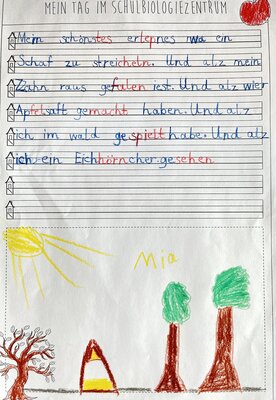 MEIN TAG IM SCHULBIOLOGIEZENTRUM
Mein schönstes erlepnes wa ein
Schaf zu streicheln. Und alz mein
Zahn raus gefalen iest. Und alz wier
Apfelsaft gemacht haben. Und alz
ich im wald gespielt habe. Und alz
ich ein Eichhörncher gesehen
Mia